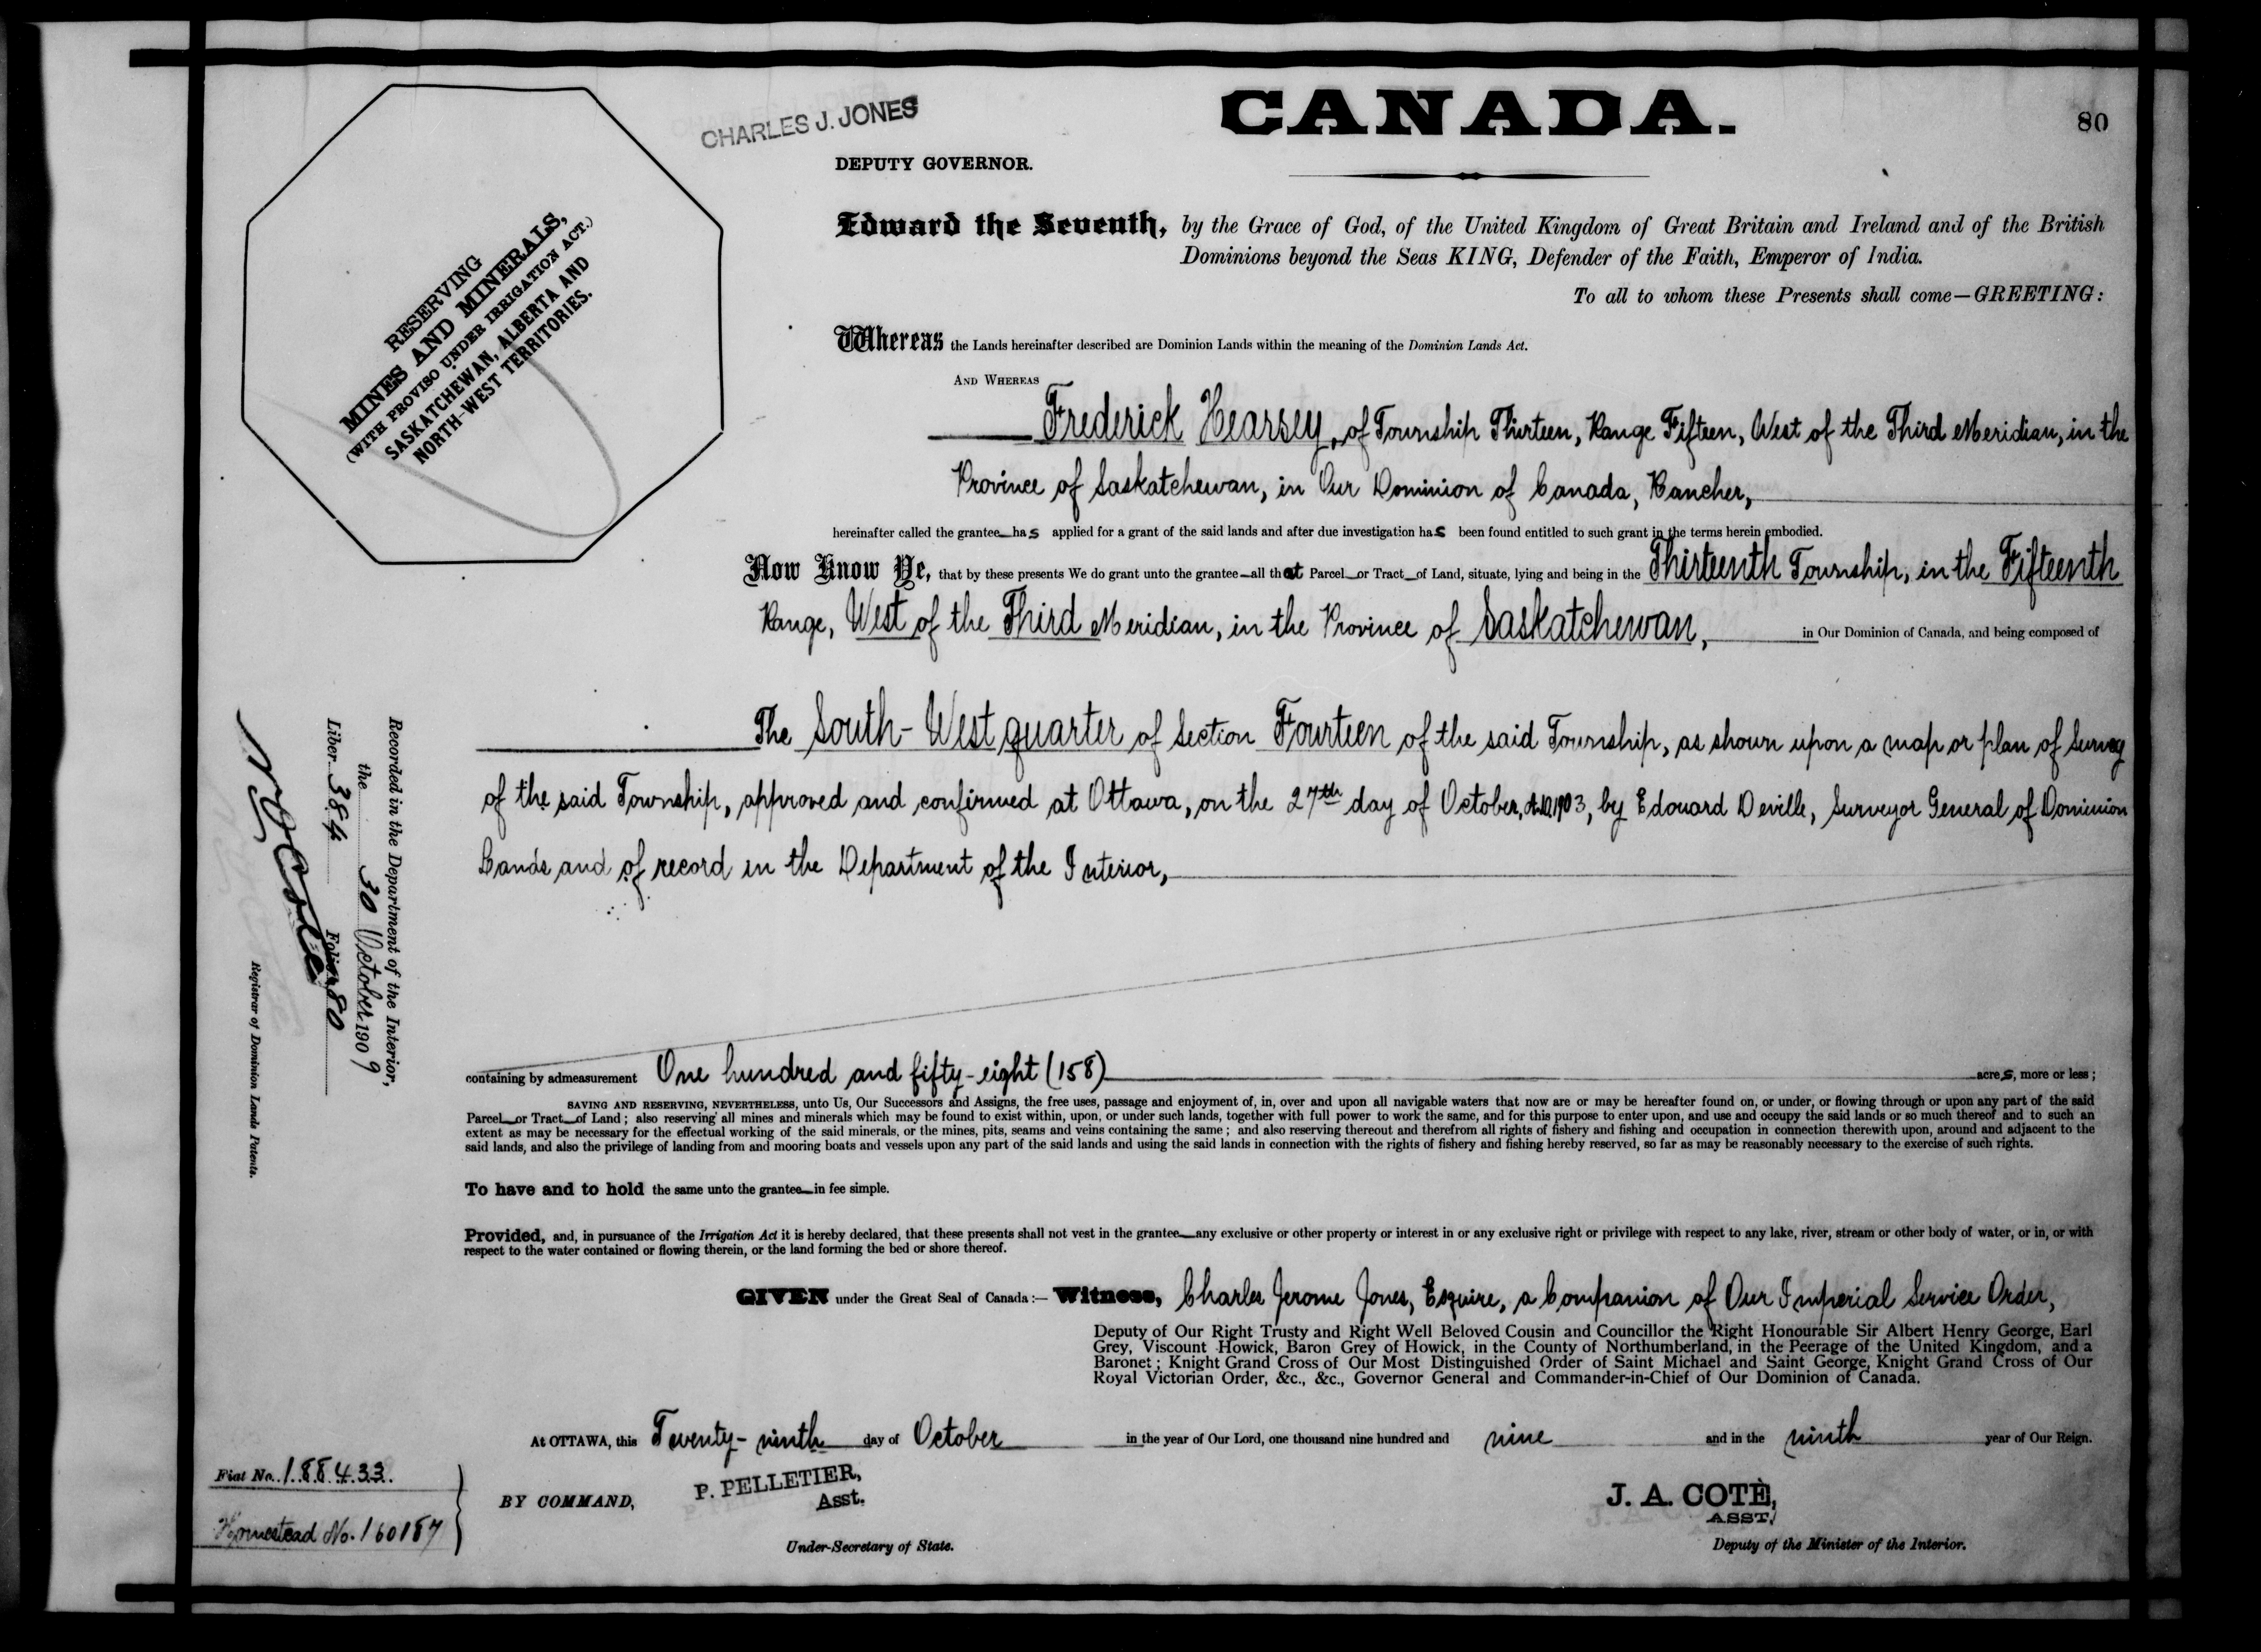 CANADA.
80
CHARLES J. JONES
DEPUTY GOVERNOR.
RESERVING
MINES AND MINERALS,
(WITH PROVISO UNDER IRRIGATION ACT.)
SASKATCHEWAN, ALBERTA AND
NORTH-WEST TERRITORIES.
Edward the Seventh, by the Grace of God, of the United Kingdom of Great Britain and Ireland and of the British
Dominions beyond the Seas KING, Defender of the Faith, Emperor of India.
To all to whom these Presents shall come—GREETING:
Whereas the Lands hereinafter described are Dominion Lands within the meaning of the Dominion Lands Act.
AND WHEREAS
Frederick Hearsey, of Township Thirteen, Range Fifteen, West of the Third Meridian, in the
Province of Saskatchewan, in Our Dominion of Canada, Rancher,
hereinafter called the grantee has applied for a grant of the said lands and after due investigation has been found entitled to such grant in the terms herein embodied.
Now Know Ye, that by these presents We do grant unto the grantee—all that Parcel or Tract of Land, situate, lying and being in the Thirteenth Township, in the Fifteenth
Range, West of the Third Meridian, in the Province of Saskatchewan, in Our Dominion of Canada, and being composed of
The South-West quarter of Section Fourteen of the said Township, as shown upon a map or plan of Survey
of the said Township, approved and confirmed at Ottawa, on the 27th day of October, A.D. 1903, by Edouard Deville, Surveyor General of Dominion
Lands and of record in the Department of the Interior,
Recorded in the Department of the Interior,
the 30 October 1909
Liber 384 Folio 80
N O Coté
Registrar of Dominion Lands Patents.
containing by admeasurement One hundred and fifty-eight (158) acres, more or less;
SAVING AND RESERVING, NEVERTHELESS, unto Us, Our Successors and Assigns, the free uses, passage and enjoyment of, in, over and upon all navigable waters that now are or may be hereafter found on, or under, or flowing through or upon any part of the said
Parcel or Tract of Land; also reserving all mines and minerals which may be found to exist within, upon, or under such lands, together with full power to work the same, and for this purpose to enter upon, and use and occupy the said lands or so much thereof and to such an
extent as may be necessary for the effectual working of the said minerals, or the mines, pits, seams and veins containing the same; and also reserving thereout and therefrom all rights of fishery and fishing and occupation in connection therewith upon, around and adjacent to the
said lands, and also the privilege of landing from and mooring boats and vessels upon any part of the said lands and using the said lands in connection with the rights of fishery and fishing hereby reserved, so far as may be reasonably necessary to the exercise of such rights.
To have and to hold the same unto the grantee in fee simple.
Provided, and, in pursuance of the Irrigation Act it is hereby declared, that these presents shall not vest in the grantee any exclusive or other property or interest in or any exclusive right or privilege with respect to any lake, river, stream or other body of water, or in, or with
respect to the water contained or flowing therein, or the land forming the bed or shore thereof.
GIVEN under the Great Seal of Canada:— Witness, Charles Jerome Jones, Esquire, a Companion of Our Imperial Service Order,
Deputy of Our Right Trusty and Right Well Beloved Cousin and Councillor the Right Honourable Sir Albert Henry George, Earl
Grey, Viscount Howick, Baron Grey of Howick, in the County of Northumberland, in the Peerage of the United Kingdom, and a
Baronet; Knight Grand Cross of Our Most Distinguished Order of Saint Michael and Saint George, Knight Grand Cross of Our
Royal Victorian Order, &c., &c., Governor General and Commander-in-Chief of Our Dominion of Canada.
At OTTAWA, this Twenty-ninth day of October in the year of Our Lord, one thousand nine hundred and nine and in the ninth year of Our Reign.
Fiat No. 188433.
Homestead No. 160187
BY COMMAND,
P. PELLETIER,
Asst.
Under-Secretary of State.
J. A. COTÈ,
ASST.
Deputy of the Minister of the Interior.